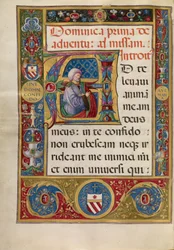 Dominica prima de
aduentu: ad missam.
Introit
D te
leuaui
animā
meam
deus
meus: in te confido
non erubescam neqʒ ir
rideant me inimici mi
et enim uniuersi qui: